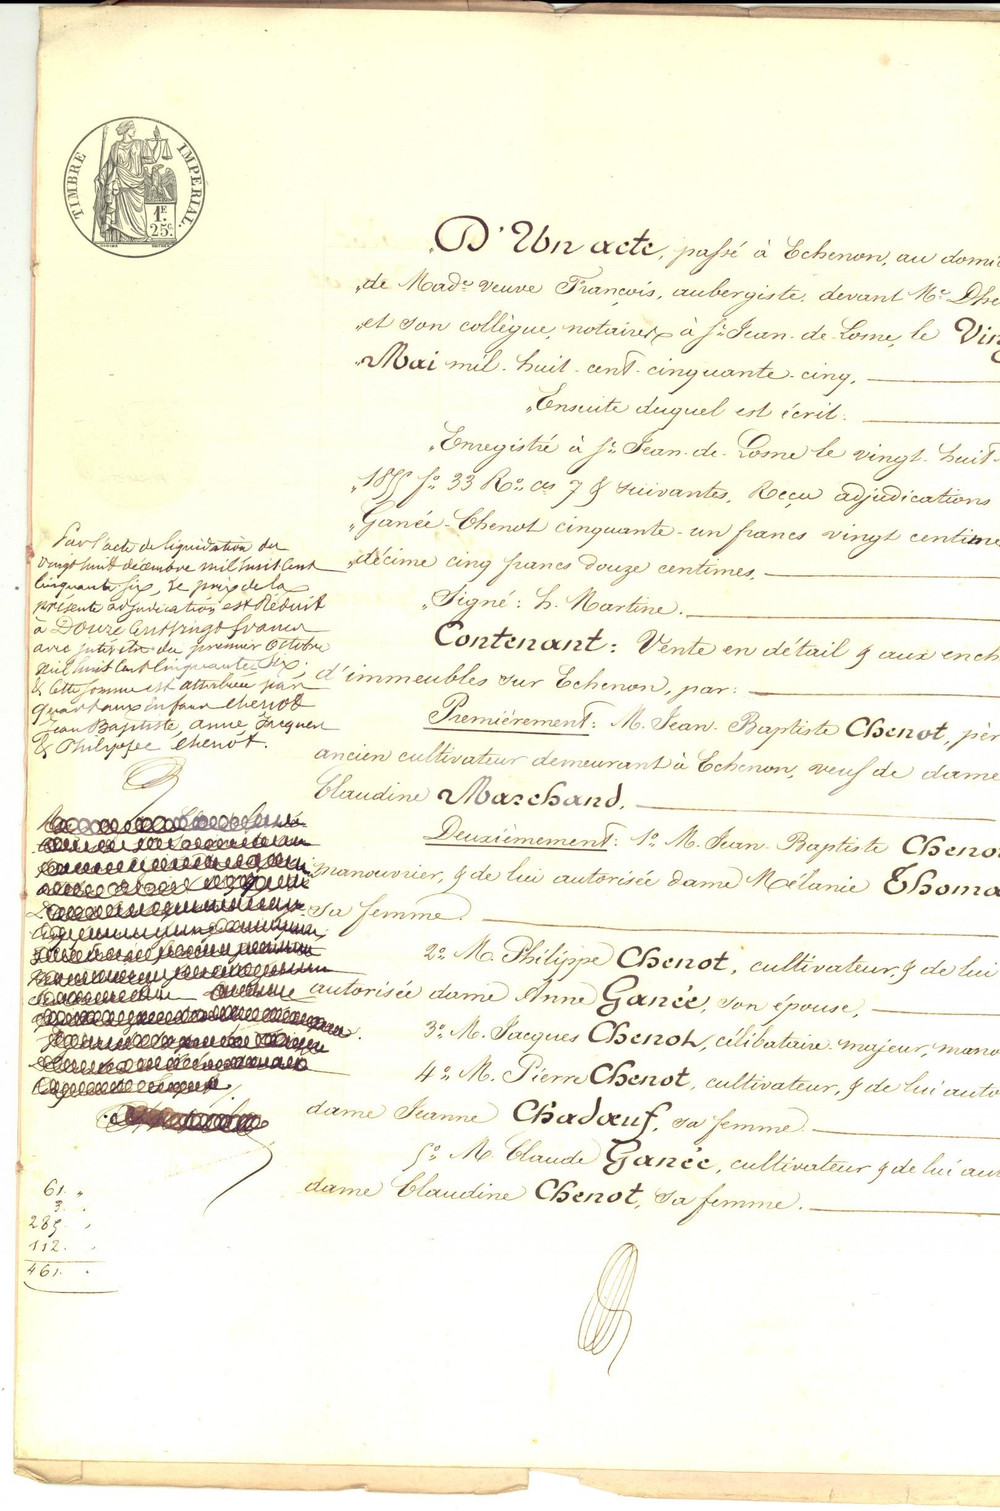 TIMBRE IMPÉRIAL.
1F.
25c.
D'Un acte, passé à Echenon, au domi
de Made. veuve François, aubergiste, devant Me. Dhe
et son collègue, notaires à St. Jean-de-Losne, le Vin
Mai mil-huit-cent-cinquante-cinq.
Ensuite duquel est écrit:
Enregistré à St. Jean-de-Losne le vingt-huit-
1855 fo. 33 Ro. cs 7 & suivantes, Reçu adjudications
Ganée-Chenot cinquante-un francs vingt centime
décime cinq francs douze centimes.
Signé: h. Martine.
Contenant: Vente en détail & aux ench
d'immeubles sur Echenon, par:
Premièrement: M. Jean-Baptiste Chenot, pèr
ancien cultivateur demeurant à Echenon, veuf de dame
Claudine Marchand.
Deuxièmement: 1o. M. Jean-Baptiste Cheno
manouvrier, & de lui autorisée dame Mélanie Thoma
sa femme.
2o. M. Philippe Chenot, cultivateur, & de lui
autorisée dame Anne Ganée, son épouse,
3o. M. Jacques Chenot, célibataire majeur, mano
4o. M. Pierre Chenot, cultivateur, & de lui auto
dame Jeanne Chadœuf, sa femme.
5o. M. Claude Ganée, cultivateur & de lui au
dame Claudine Chenot, sa femme.
Par l'acte de liquidation du
vingt huit décembre mil huit cent
cinquante six, le prix de la
présente adjudication est Réduit
à Douze cent vingt francs
avec intérêts du premier octobre
mil huit cent cinquante-six;
& cette somme est attribuée par
quart aux enfans Chenot
Jean Baptiste, anne, Jacques
& Philippe Chenot.
61. "
3.
285.
112.
461.